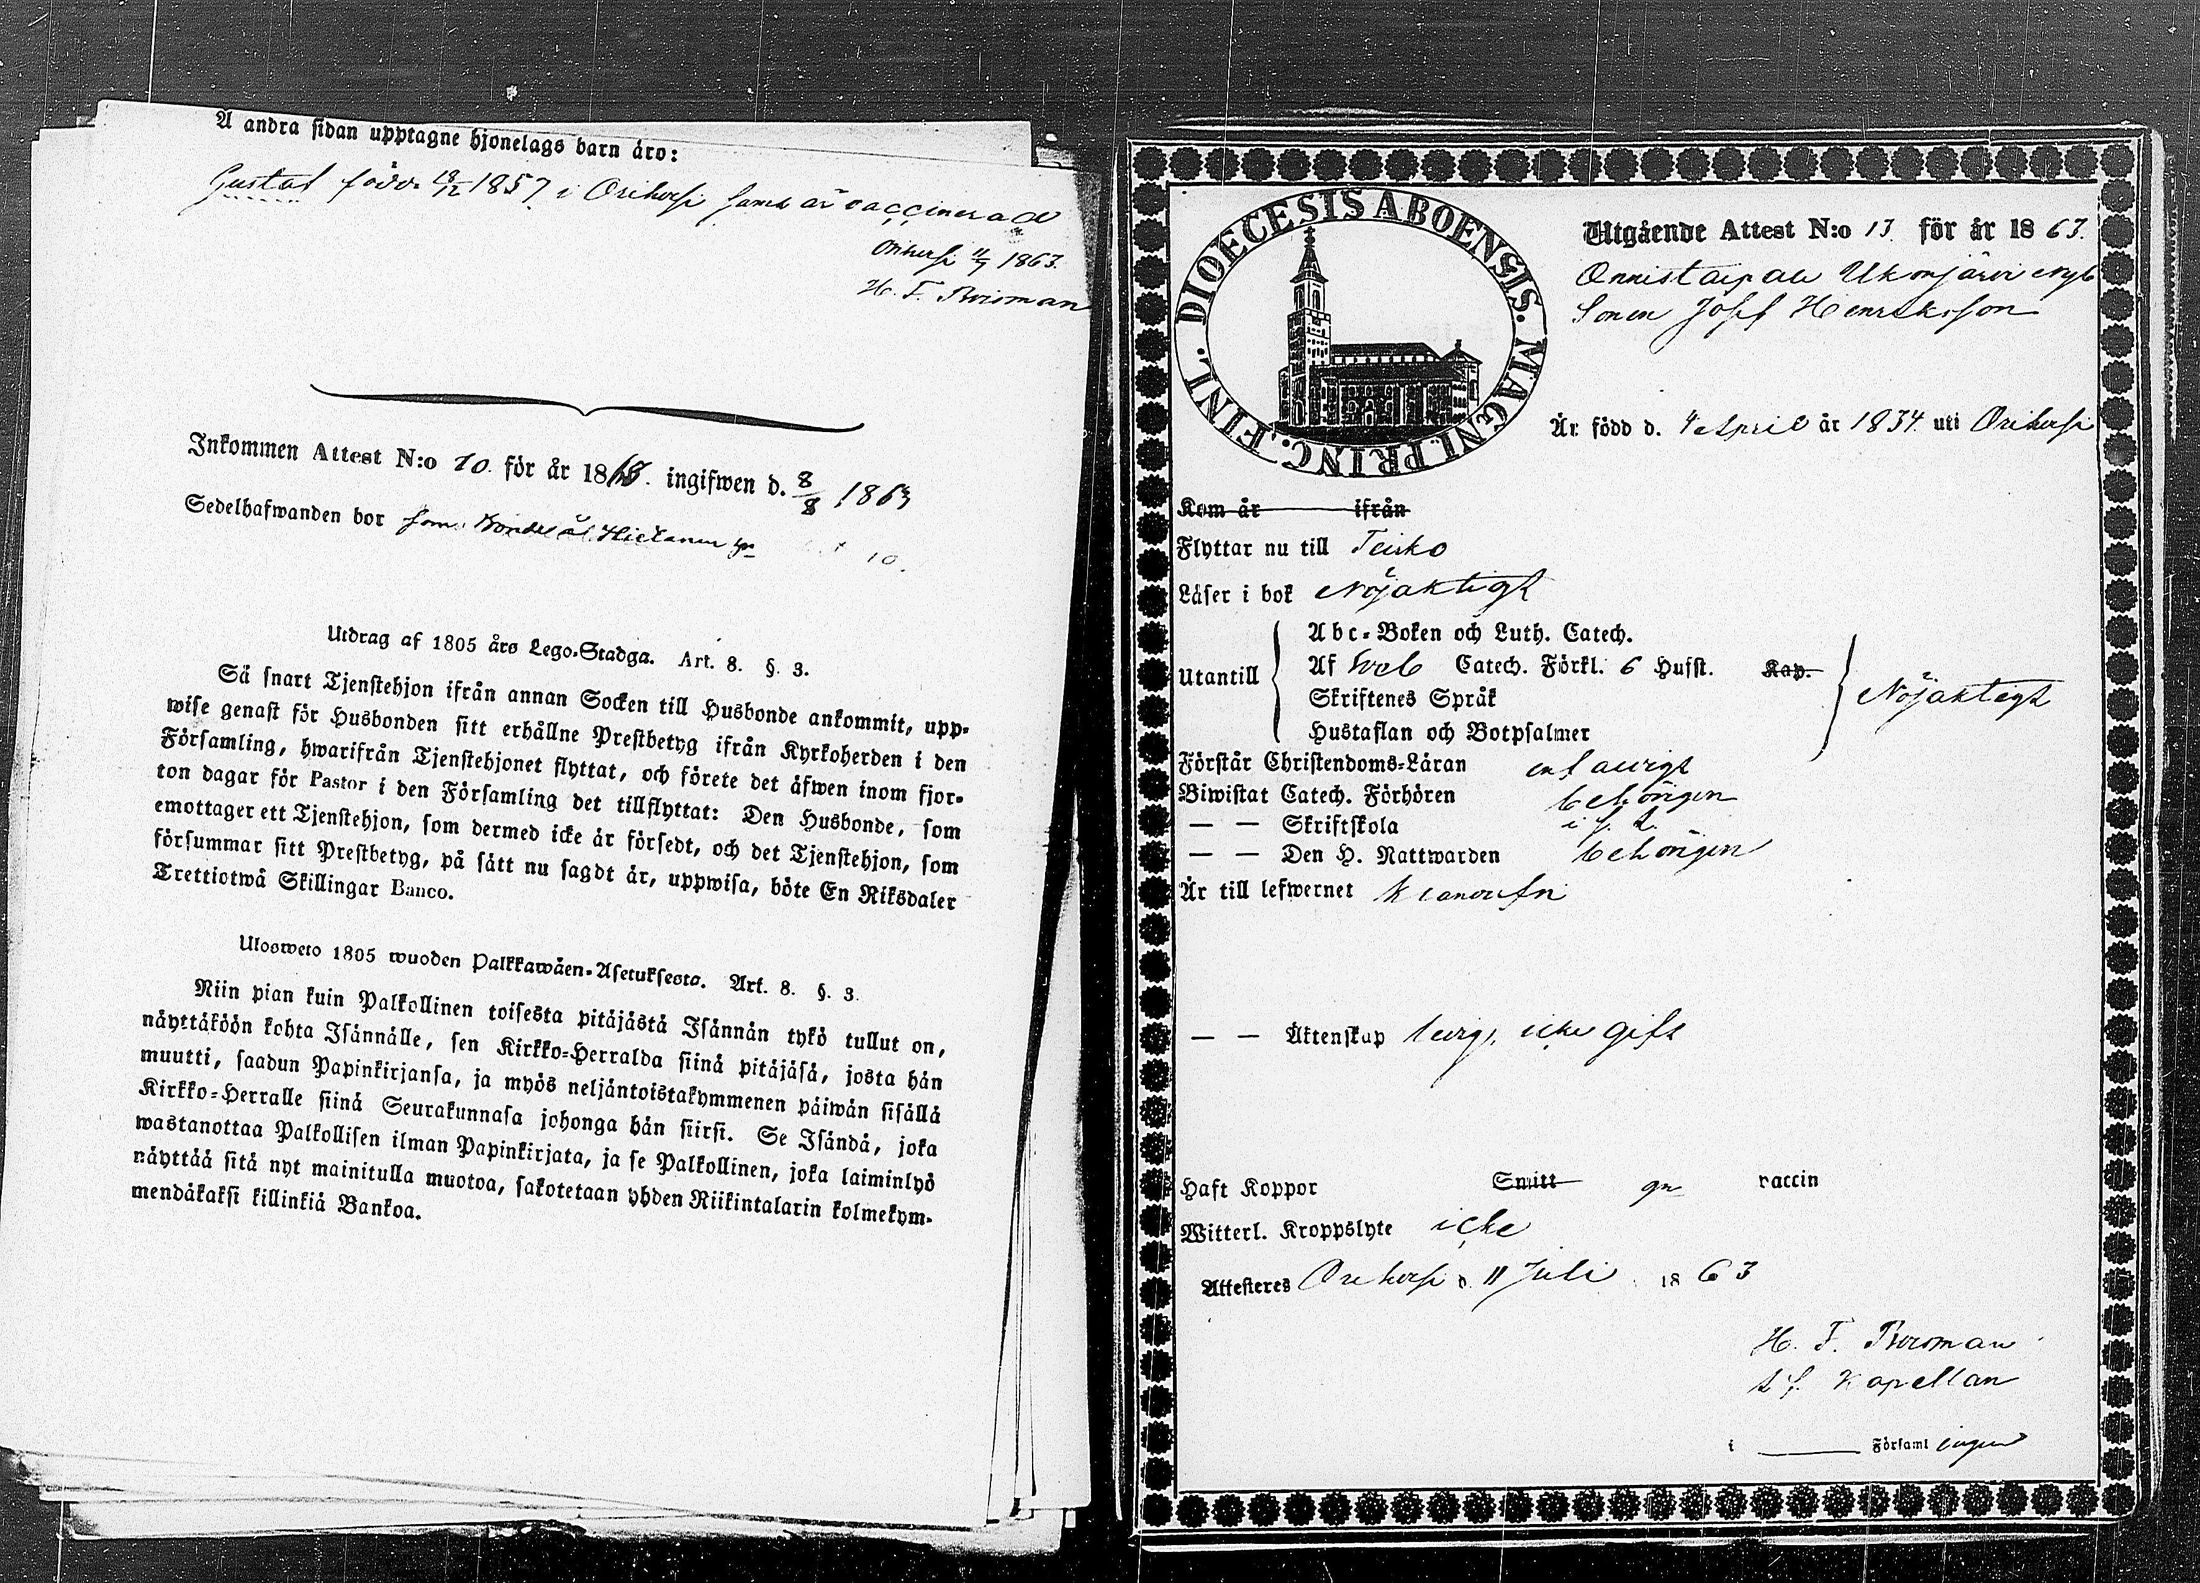 Å andra sidan upptagne hjonelags barn äro:
Gustaf född 18/12 1857 i Orihvesi samt är vaccinerad
Orihvesi 11/7 1863.
H. F. Boisman
Inkommen Attest N:o 70. för år 1863. ingifwen d. 8/8 1863
Sedelhafwanden bor som
10.
Utdrag af 1805 års Lego-Stadga. Art. 8. §. 3.
Så snart Tjenstehjon ifrån annan Socken till Husbonde ankommit, upp-
wise genast för Husbonden sitt erhållne Prestbetyg ifrån Kyrkoherden i den
Församling, hwarifrån Tjenstehjonet flyttat, och förete det äfwen inom fjor-
ton dagar för Pastor i den Församling det tillflyttat: Den Husbonde, som
emottager ett Tjenstehjon, som dermed icke är försedt, och det Tjenstehjon, som
försummar sitt Prestbetyg, på sätt nu sagdt är, uppwisa, böte En Riksdaler
Trettiotwå Skillingar Banco.
Ulosweto 1805 wuoden Palkkawäen-Asetuksesta. Art. 8. §. 3.
Niin pian kuin Palkollinen toisesta pitäjästä Isännän tykö tullut on,
näyttäköön kohta Isännälle, sen Kirkko-Herralda siinä pitäjäsä, josta hän
muutti, saadun Papinkirjansa, ja myös neljäntoistakymmenen päiwän sisällä
Kirkko-Herralle siinä Seurakunnasa johonga hän siirsi. Se Isändä, joka
wastanottaa Palkollisen ilman Papinkirjata, ja se Palkollinen, joka laiminlyö
näyttää sitä nyt mainitulla muotoa, sakotetaan yhden Riikintalarin kolmekym-
mendäkaksi killinkiä Bankoa.
DIOECESIS ABOENSIS. MAGNI. PRINC. FINL.
Utgående Attest N:o 13. för år 1863.
Onnistaipale Ukonjärvi nyb
Sonen Josef Henriksson
Är född d. 4 April år 1834. uti Orihvesi
Kom år ifrån
Flyttar nu till Teisko
Läser i bok Nöjaktigt
Utantill
Abc-Boken och Luth. Catech.
Af Sveb Catech. Förkl. 6 Hufst. Kap.
Skriftenes Språk
Hustaflan och Botpsalmer
Nöjaktigt
Förstår Christendoms-Läran enfaldigt
Biwistat Catech. Förhören behörigen
— — Skriftskola
— — Den H. Nattwarden behörigen
Är till lefwernet klanderfri
— — Äktenskap ledig, icke gift
Haft Koppor Smitt gn vaccin
Witterl. Kroppslyte icke
Attesteres Orihvesi d. 11 Juli 1863
H. F. Boisman
t.f. Kapellan
i Församlingen